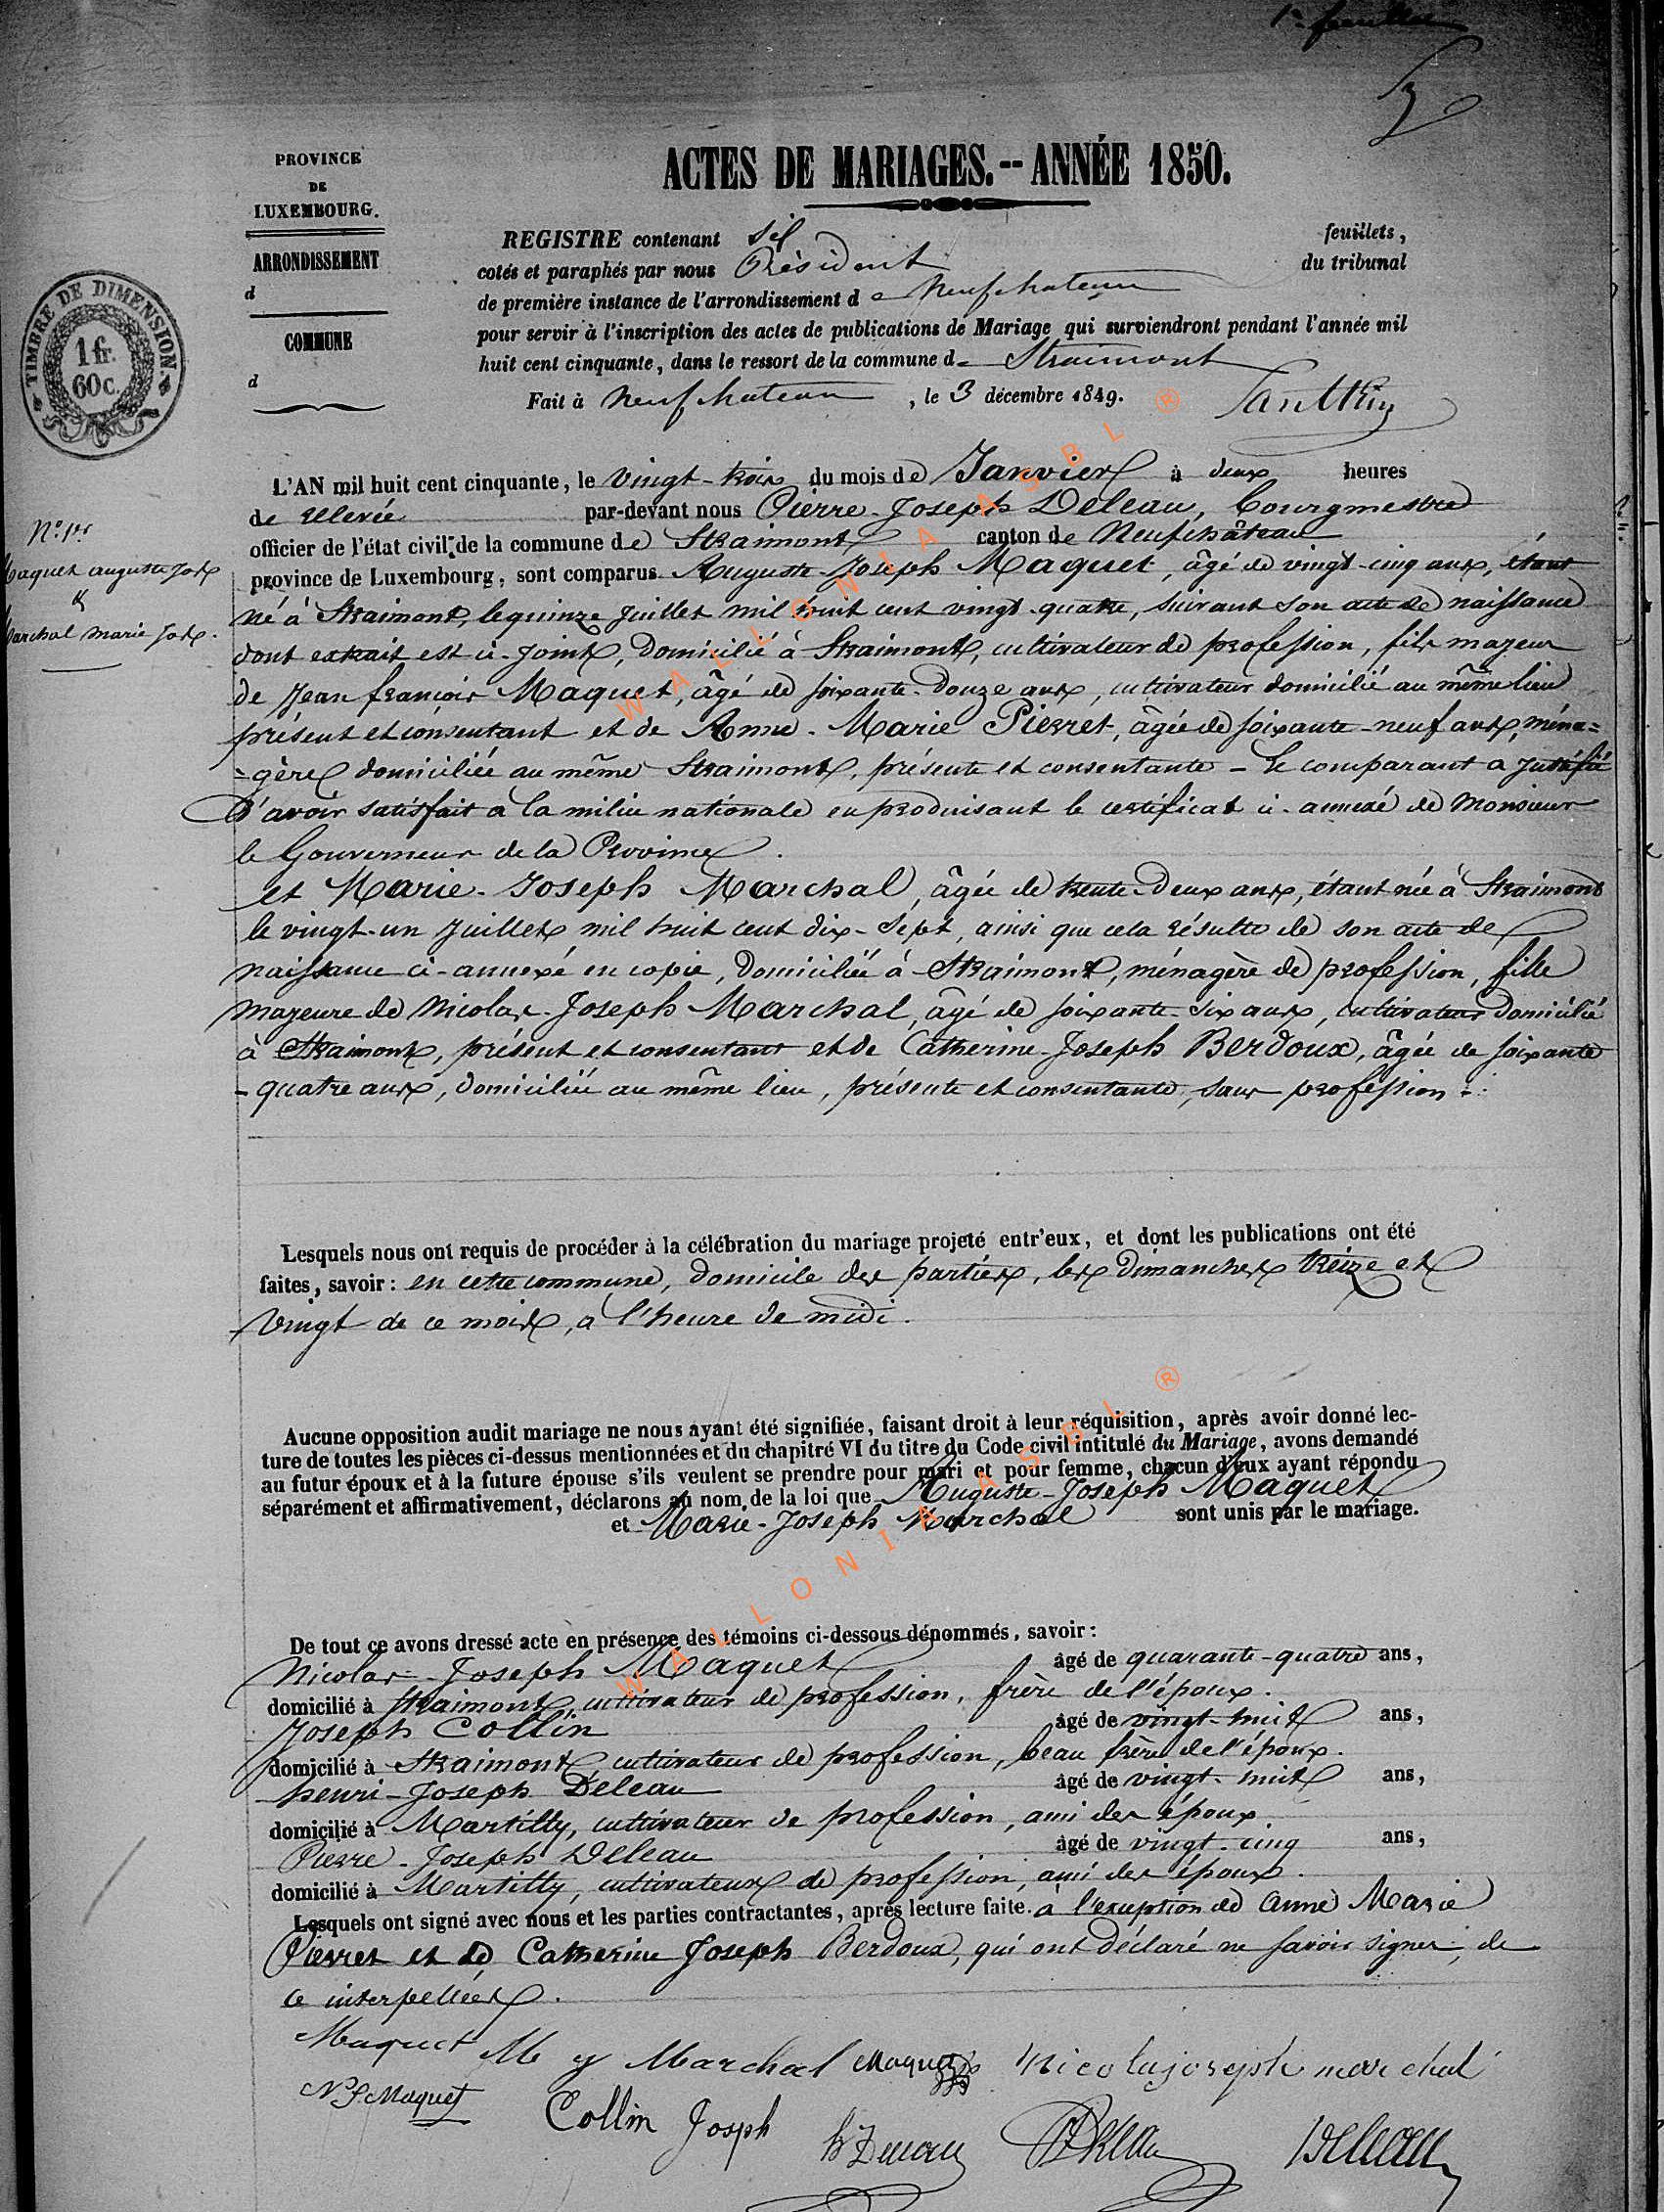 1er feuillet
PROVINCE
DE
LUXEMBOURG.
ARRONDISSEMENT
d
COMMUNE
d
TIMBRE DE DIMENSION
1 fr.
60 c.
ACTES DE MARIAGES.-- ANNÉE 1850.
REGISTRE contenant six feuillets,
cotés et paraphés par nous Président du tribunal
de première instance de l'arrondissement de Neufchateau
pour servir à l'inscription des actes de publications de Mariage qui surviendront pendant l'année mil
huit cent cinquante, dans le ressort de la commune de Straimont
Fait à Neufchateau, le 3 décembre 1849.
L'AN mil huit cent cinquante, le vingt-trois du mois de Janvier à deux heures
de relevée par-devant nous Pierre-Joseph Deleau, Bourgmestre
officier de l'état civil de la commune de Straimont canton de Neufchâteau
N° 1er
Maquet auguste Jos.
&
Marchal marie Jos.
province de Luxembourg, sont comparus Auguste-Joseph Maquet, âgé de vingt-cinq ans, étant
né à Straimont, le quinze Juillet mil huit cent vingt-quatre, suivant son acte de naissance
dont extrait est ci-joint, domicilié à Straimont, cultivateur de profession, fils majeur
de Jean françois Maquet, âgé de soixante-douze ans, cultivateur domicilié au même lieu
présent et consentant et de Anne-Marie Pierret, âgée de soixante-neuf ans, ména=
=gère domiciliée au même Straimont, présente et consentante - Le comparant a justifié
d'avoir satisfait à la milice nationale en produisant le certificat ci-annexé de Monsieur
le Gouverneur de la Province.
et Marie-Joseph Marchal, âgée de trente-deux ans, étant née à Straimont
le vingt-un Juillet mil huit cent dix-sept, ainsi que cela résulte de son acte de
naissance ci-annexé en copie, domiciliée à Straimont, ménagère de profession, fille
majeure de Nicolas-Joseph Marchal, âgé de soixante-six ans, cultivateur domicilié
à Straimont, présent et consentant et de Catherine-Joseph Berdoux, âgée de soixante
-quatre ans, domiciliée au même lieu, présente et consentante, sans profession.
Lesquels nous ont requis de procéder à la célébration du mariage projeté entr'eux, et dont les publications ont été
faites, savoir: en cette commune, domicile des parties, les dimanches treize et
vingt de ce mois, à l'heure de midi.
Aucune opposition audit mariage ne nous ayant été signifiée, faisant droit à leur réquisition, après avoir donné lec-
ture de toutes les pièces ci-dessus mentionnées et du chapitre VI du titre du Code civil intitulé du Mariage, avons demandé
au futur époux et à la future épouse s'ils veulent se prendre pour mari et pour femme, chacun d'eux ayant répondu
séparément et affirmativement, déclarons au nom de la loi que Auguste-Joseph Maquet
et Marie-Joseph Marchal sont unis par le mariage.
De tout ce avons dressé acte en présence des témoins ci-dessous dénommés, savoir:
Nicolas-Joseph Maquet âgé de quarante-quatre ans,
domicilié à Straimont, cultivateur de profession, frère de l'époux.
Joseph Collin âgé de vingt-huit ans,
domicilié à Straimont, cultivateur de profession, beau frère de l'époux.
henri-Joseph Deleau âgé de vingt-huit ans,
domicilié à Martilly, cultivateur de profession, ami des époux.
Pierre-Joseph Deleau âgé de vingt-cinq ans,
domicilié à Martilly, cultivateur de profession, ami des époux.
Lesquels ont signé avec nous et les parties contractantes, après lecture faite. à l'exception de Anne Marie
Pierret et de Catherine Joseph Berdoux, qui ont déclaré ne savoir signer, de
ce interpellées.
Maquet M j Marchal Maquet Nicolas joseph marchal
N J Maquet Collin Joseph h Deleau PDeleau Deleau
WALLONIA ASBL ®
WALLONIA ASBL ®